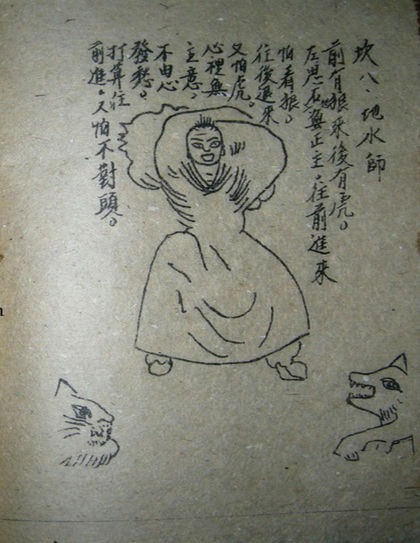 坎八、地水師
前有狼來後有虎。
左思右無正主。往前進來
怕着狼。
往後退來
又怕虎
心裡無
主意。
不由心
發愁。
打算往
前進。又怕不對頭。